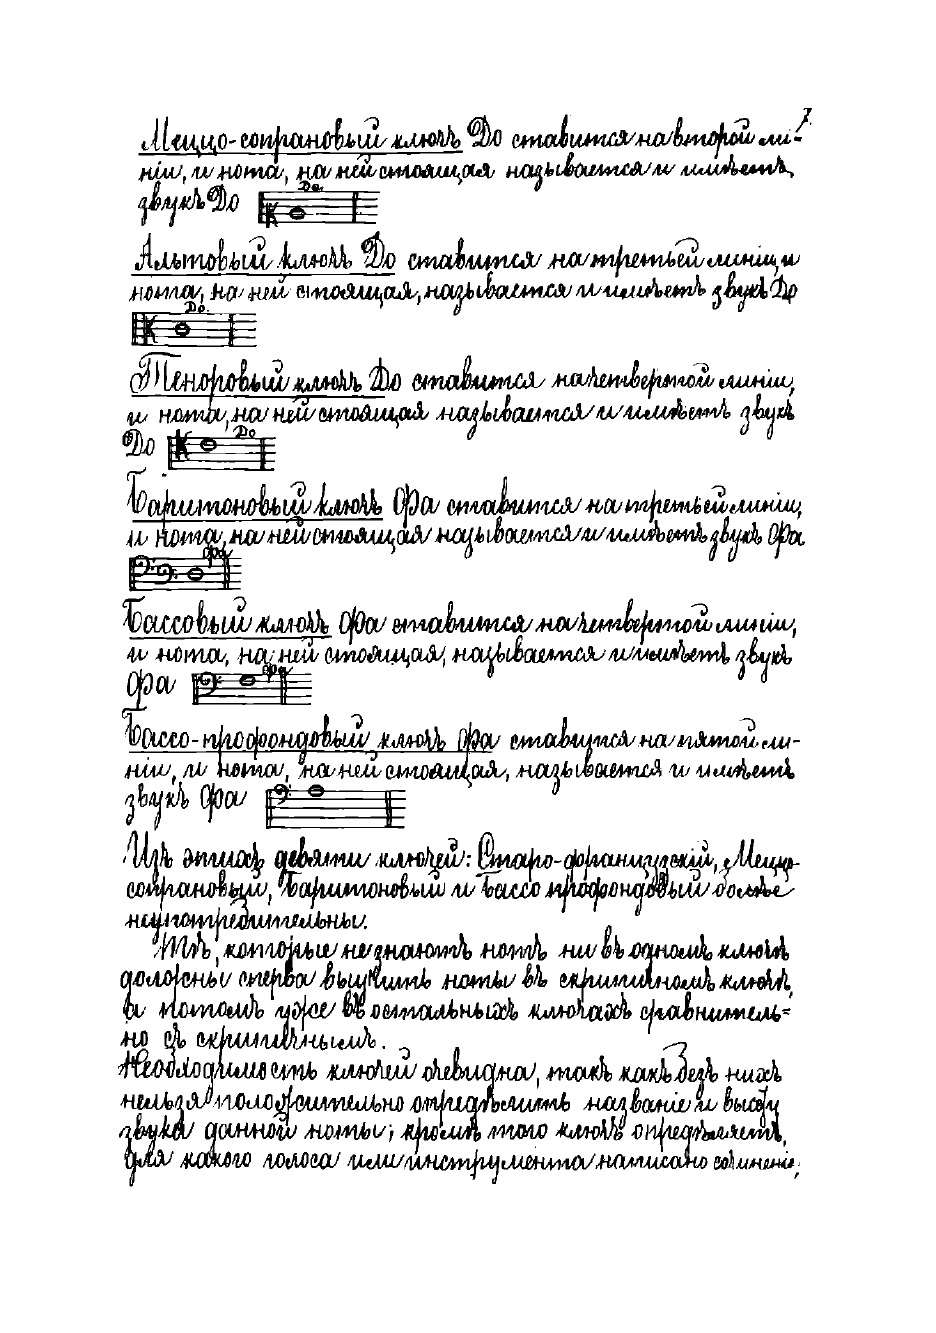 7.
Меццо-сопрановый ключъ До ставится на второй ли-
ніи, и нота, на ней стоящая называется и имѣетъ
звукъ До
До.
Альтовый ключъ До ставится на третьей линіи, и
нота, на ней стоящая, называется и имѣетъ звукъ До
До.
Теноровый ключъ До ставится на четвертой линіи,
и нота, на ней стоящая называется и имѣетъ звукъ
До
До
Баритоновый ключъ Фа ставится на третьей линіи,
и нота, на ней стоящая называется и имѣетъ звукъ Фа
Фа
Бассовый ключъ Фа ставится на четвертой линіи,
и нота, на ней стоящая, называется и имѣетъ звукъ
Фа
Фа
Бассо-профондовый ключъ Фа ставится на пятой ли-
ніи, и нота, на ней стоящая, называется и имѣетъ
звукъ Фа
Изъ этихъ девяти ключей: Старо-французскій, Меццо-
сопрановый, Баритоновый и Бассо профондовый болѣе
неупотребительны.
Тѣ, которые не знаютъ нотъ ни въ одномъ ключѣ
должны сперва выучить ноты въ скрипичномъ ключѣ,
а потомъ уже въ остальныхъ ключахъ сравнитель=
но съ скрипичнымъ.
Необходимость ключей очевидна, такъ какъ безъ нихъ
нельзя положительно опредѣлить названіе и высоту
звука данной ноты; кромѣ того ключъ опредѣляетъ,
для какого голоса или инструмента написано сочиненіе,